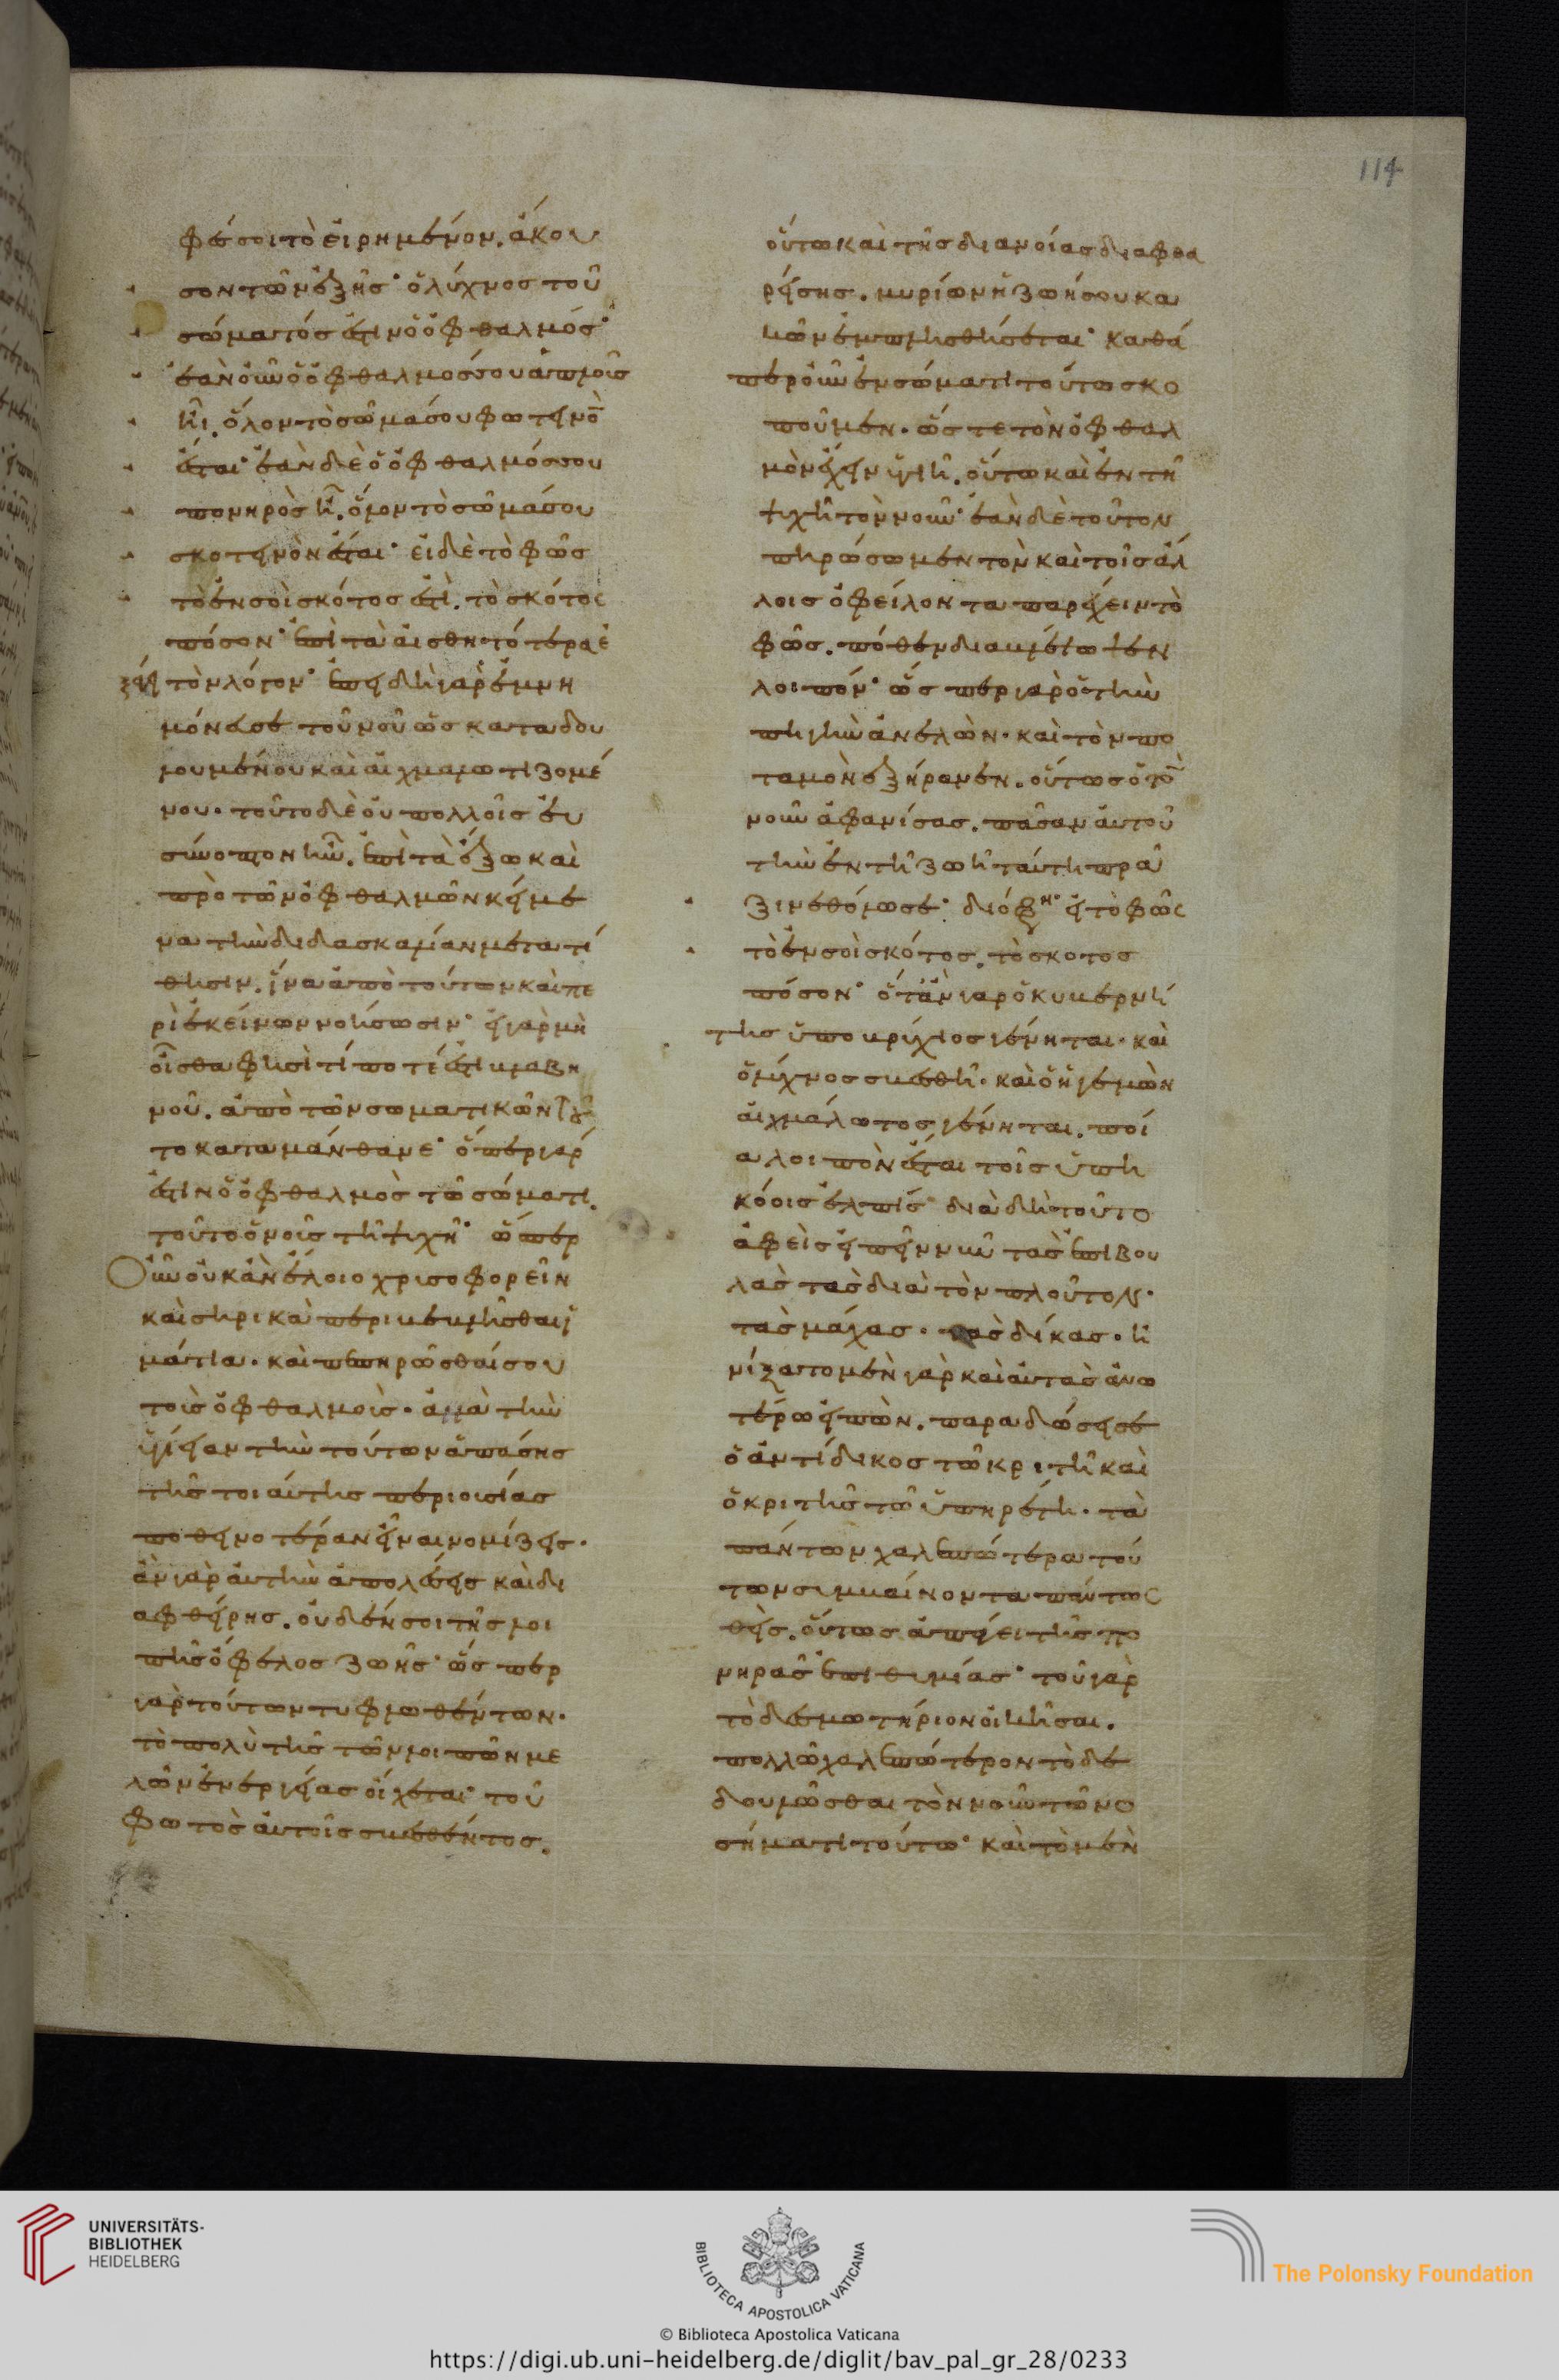 114
φέσοι τὸ εἰρημένον, ἄκου
σον τῶν ἑξῆς· ὁ λύχνος τοῦ
σώματός ἐστιν ὁ ὀφθαλμός·
ἐὰν οὖν ὁ ὀφθαλμός σου ἁπλοῦς
ᾖ, ὅλον τὸ σῶμά σου φωτεινὸν
ἔσται· ἐὰν δὲ ὁ ὀφθαλμός σου
πονηρὸς ᾖ, ὅλον τὸ σῶμά σου
σκοτεινὸν ἔσται· εἰ δὲ τὸ φῶς
τὸ ἐν σοὶ σκότος ἐστὶ, τὸ σκότος
πόσον· ἐπὶ τὰ αἰσθητότερα ἐ
ξάγει τὸν λόγον· ἐπειδὴ γὰρ ἐμνη
μόνευσε τοῦ νοῦ ὡς καταδου
λουμένου καὶ αἰχμαλωτιζομέ
νου. τοῦτο δὲ οὐ πολλοῖς εὐ
σύνοπτον ἦν, ἐπὶ τὰ ἔξω καὶ
πρὸ τῶν ὀφθαλμῶν κείμε
να τὴν διδασκαλίαν μετατί
θησιν, ἵνα ἀπὸ τούτων καὶ πε
ρὶ ἐκείνων νοήσωσιν· εἰ γὰρ μὴ
οἶσθα φησὶ τί ποτέ ἐστι βλάβη
νοῦ, ἀπὸ τῶν σωματικῶν τοῦ
το καταμάνθανε· ὅπερ γάρ
ἐστιν ὁ ὀφθαλμὸς τῷ σώματι,
τοῦτο ὁ νοῦς τῇ ψυχῇ· ὥσπερ
οὖν οὐκ ἂν ἕλοιο χρυσοφορεῖν
καὶ σηρικὰ περιβεβλῆσθαι ἱ
μάτια. καὶ πεπηρῶσθαί σου
τοὺς ὀφθαλμοὺς. ἀλλὰ τὴν
ὑγίειαν τὴν τούτων ἁπάσης
τῆς τοιαύτης περιουσίας
ποθεινοτέραν εἶναι νομίζεις.
ἂν γὰρ αὐτὴν ἀπολέσῃς καὶ δι
αφθείρῃς, οὐδέν σοι τῆς λοι
πῆς ὄφελος ζωῆς· ὥσπερ
γὰρ τούτων τυφλωθέντων.
τὸ πολὺ τῆς τῶν λοιπῶν με
λῶν ἐνεργείας οἴχεται· τοῦ
φωτὸς αὐτοῖς σβεσθέντος.
οὕτω καὶ τῆς διανοίας διαφθα
ρείσης, μυρίων ἡ ζωή σου κα
κῶν ἐμπλησθήσεται· καθά
περ οὖν ἐν σώματι τοῦτο σκο
ποῦμεν. ὥστε τὸν ὀφθαλ
μὸν ἔχειν ὑγιῆ, οὕτω καὶ ἐν τῇ
ψυχῇ τὸν νοῦν· ἐὰν δὲ τοῦτον
πηρώσωμεν τὸν καὶ τοῖς ἄλ
λοις ὀφείλοντα παρέχειν τὸ
φῶς, πόθεν διαβλέψωμεν
λοιπόν· ὥσπερ γὰρ ὁ τὴν
πηγὴν ἀνελὼν. καὶ τὸν πο
ταμὸν ἐξήρανεν, οὕτως ὁ τὸν
νοῦν ἀφανίσας, πᾶσαν αὐτοῦ
τὴν ἐν τῇ ζωῇ ταύτῃ πρᾶ
ξιν ἐθόλωσε· διό φησιν· εἰ τὸ φῶς
τὸ ἐν σοὶ σκότος, τὸ σκότος
πόσον· ὅταν γὰρ ὁ κυβερνή
της ὑποβρύχιος γένηται. καὶ
ὁ λύχνος σβεσθῇ. καὶ ὁ ἡγεμὼν
αἰχμάλωτος γένηται, ποί
α λοιπὸν ἔσται τοῖς ὑπη
κόοις ἐλπίς· διὰ δὴ τοῦτο
ἀφεὶς εἰπεῖν νῦν τὰς ἐπιβου
λὰς τὰς διὰ τὸν πλοῦτον.
τὰς μάχας. τὰς δίκας. ᾐ
νίξατο μὲν γὰρ καὶ αὐτὰς ἀνω
τέρω εἰπὼν, παραδώσει σε
ὁ ἀντίδικος τῷ κριτῇ καὶ
ὁ κριτὴς τῷ ὑπηρέτῃ. τὰ
πάντων χαλεπώτερα τού
των συμβαίνοντα πάντως
θεὶς, οὕτως ἀπάγει τῆς πο
νηρᾶς ἐπιθυμίας· τοῦ γὰρ
τὸ δεσμωτήριον οἰκῆσαι,
πολλῷ χαλεπώτερον τὸ δε
δουλῶσθαι τὸν νοῦν τῷ νο
σήματι τούτῳ· καὶ τὸ μὲν
UNIVERSITÄTS-
BIBLIOTHEK
HEIDELBERG
BIBLIOTECA APOSTOLICA VATICANA
The Polonsky Foundation
© Biblioteca Apostolica Vaticana
https://digi.ub.uni-heidelberg.de/diglit/bav_pal_gr_28/0233